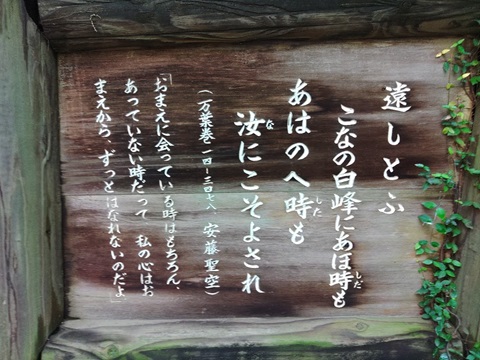 遠しとふ
こなの白峰にあほ時も
しだ
あはのへ時も
しだ
汝にこそよされ
な
(万葉巻一四-三四七八、安藤聖空)
「おまえに会っている時はもちろん、
あっていない時だって 私の心はお
まえから、ずっとはなれないのだよ」